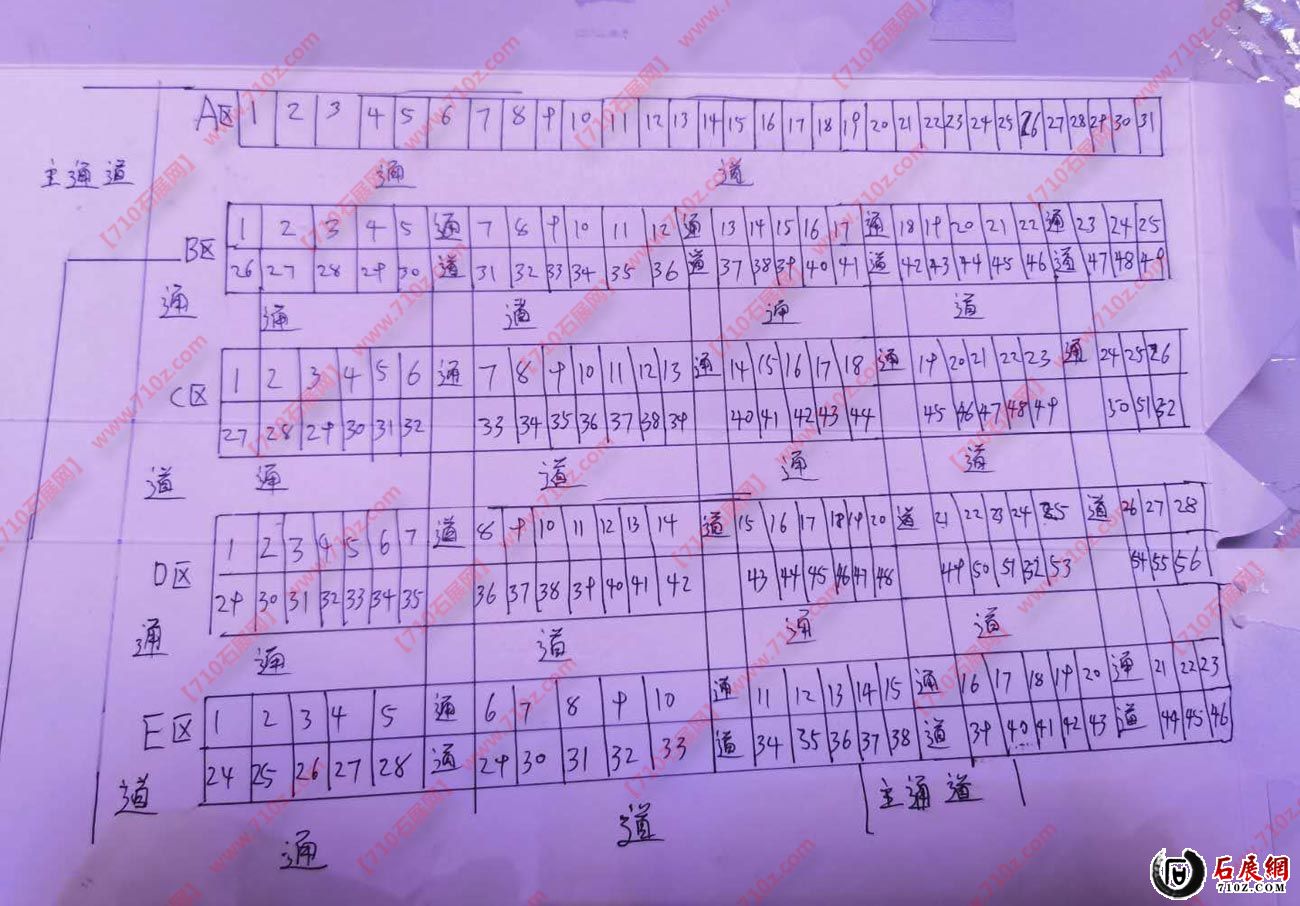 A区 1 2 3 4 5 6 7 8 9 10 11 12 13 14 15 16 17 18 19 20 21 22 23 24 25 26 27 28 29 30 31
主通道 通 道
B区 1 2 3 4 5 通 7 8 9 10 11 12 通 13 14 15 16 17 通 18 19 20 21 22 通 23 24 25
26 27 28 29 30 道 31 32 33 34 35 36 道 37 38 39 40 41 道 42 43 44 45 46 通 47 48 49
通 通 道 通 道
C区 1 2 3 4 5 6 通 7 8 9 10 11 12 13 通 14 15 16 17 18 通 19 20 21 22 23 通 24 25 26
27 28 29 30 31 32 33 34 35 36 37 38 39 40 41 42 43 44 45 46 47 48 49 50 51 52
道 通 道 通 道
D区 1 2 3 4 5 6 7 道 8 9 10 11 12 13 14 道 15 16 17 18 19 20 道 21 22 23 24 25 道 26 27 28
29 30 31 32 33 34 35 36 37 38 39 40 41 42 43 44 45 46 47 48 49 50 51 52 53 54 55 56
通 通 道 通 道
E区 1 2 3 4 5 通 6 7 8 9 10 通 11 12 13 14 15 通 16 17 18 19 20 通 21 22 23
24 25 26 27 28 道 29 30 31 32 33 道 34 35 36 37 38 道 39 40 41 42 43 道 44 45 46
道 通 道 主通道
【710石展网】
www.710z.com
石展網
710Z.COM